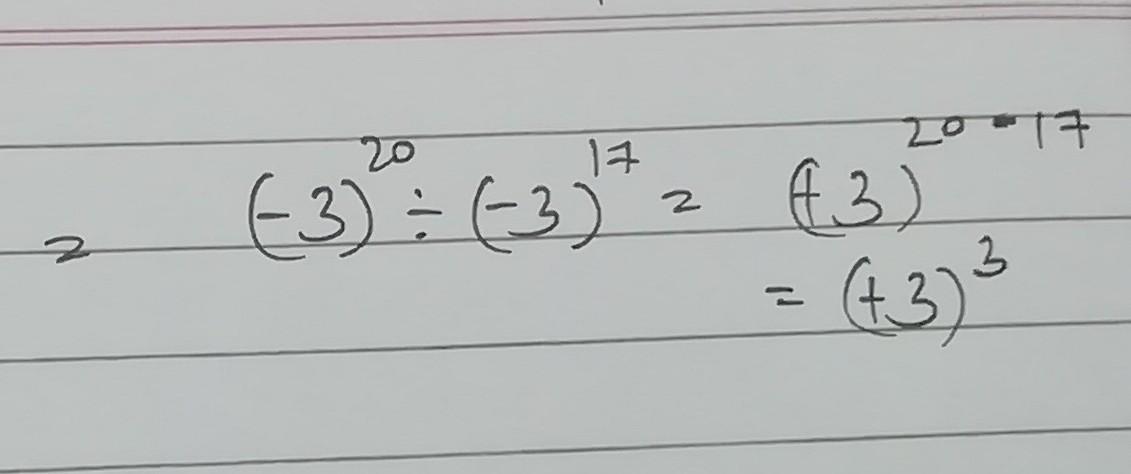 = (-3)²⁰ ÷ (-3)¹⁷ = (+3)²⁰⁻¹⁷
= (+3)³